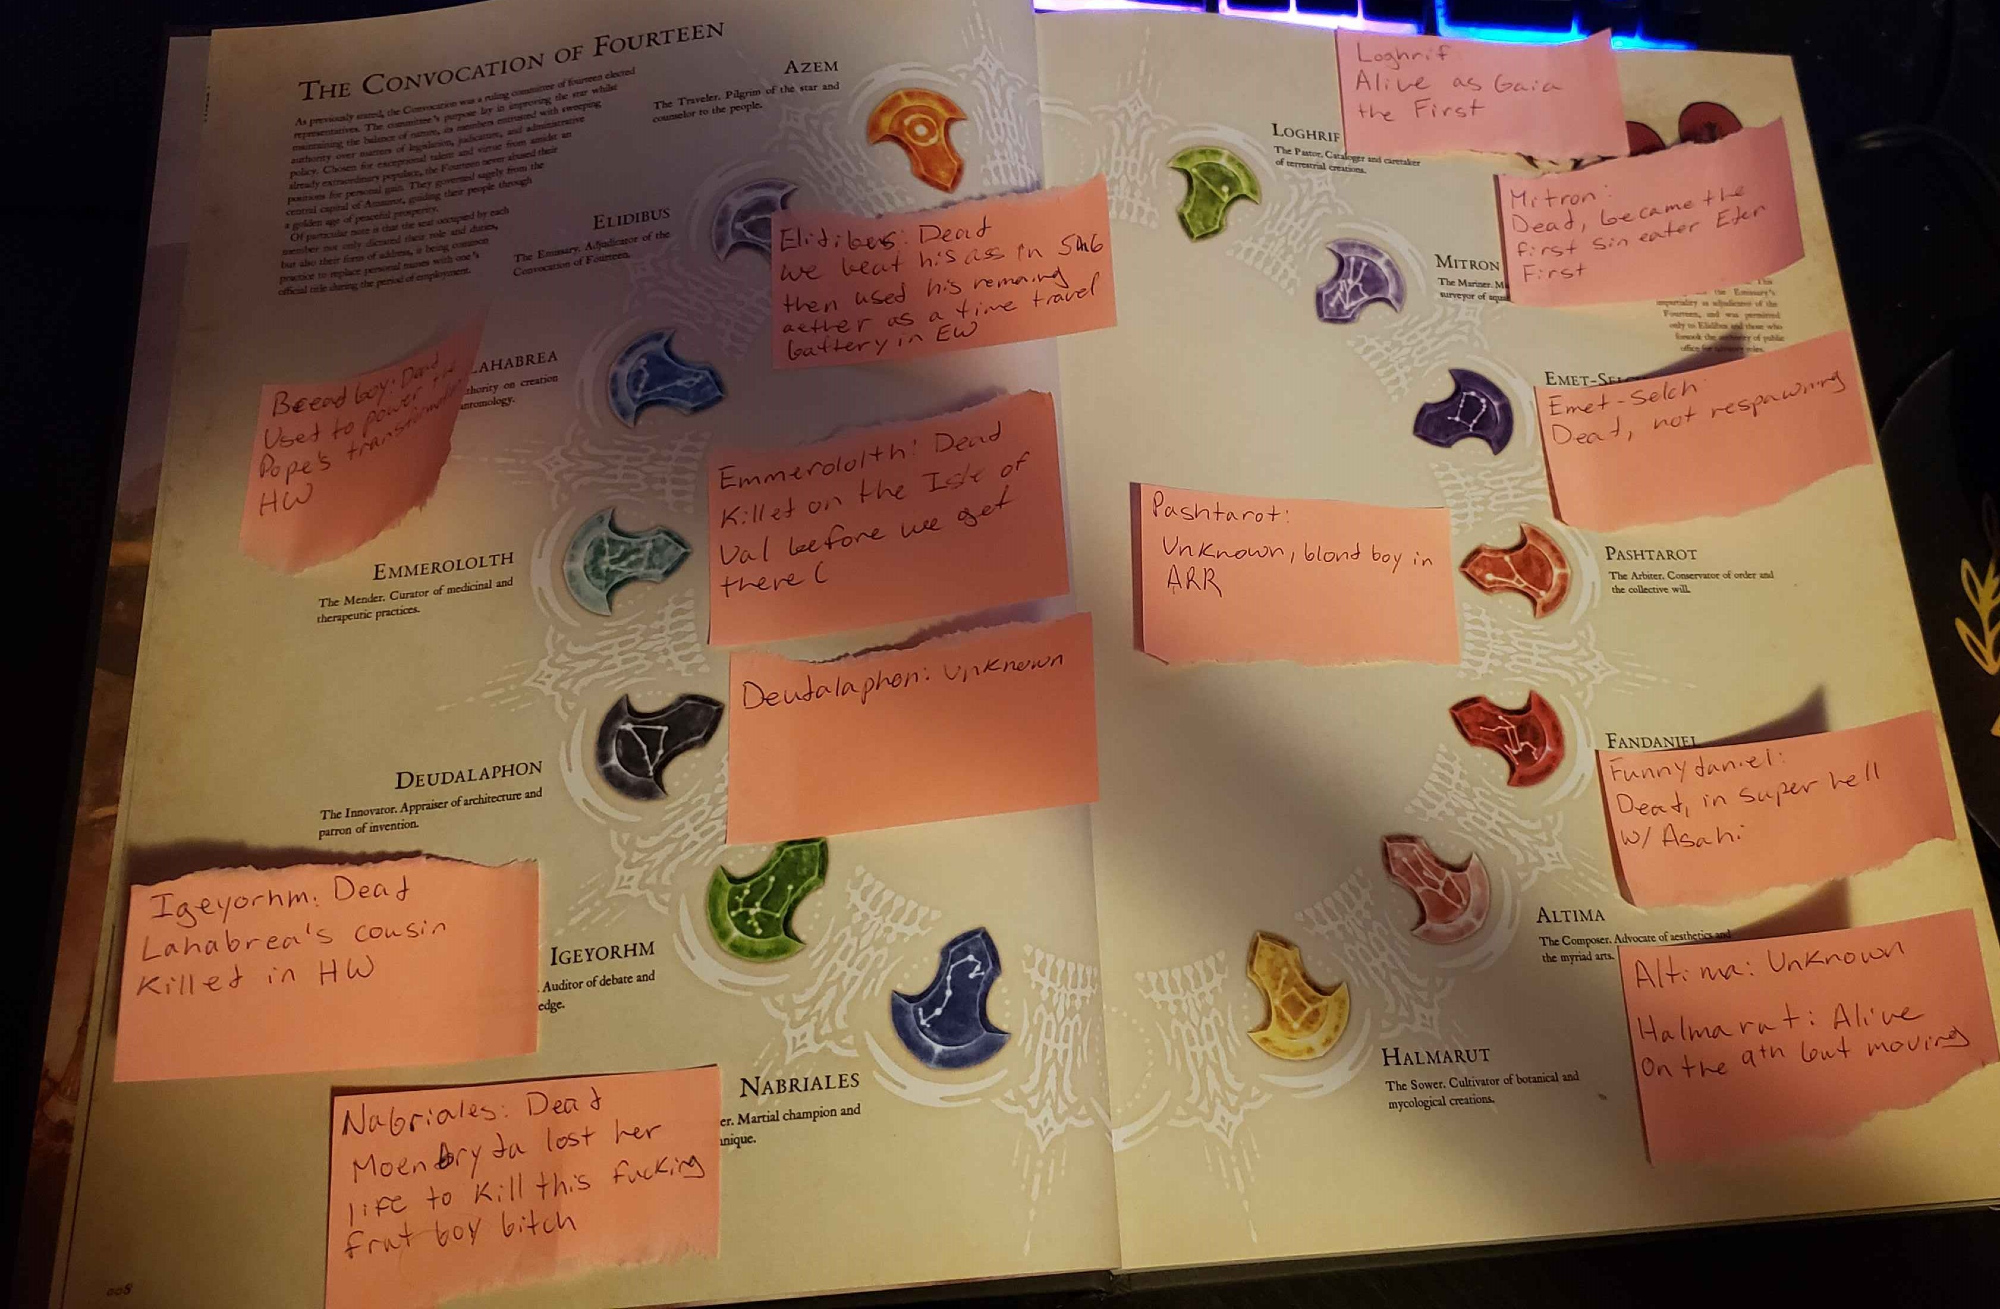 THE CONVOCATION OF FOURTEEN
As previously stated, the Convocation was a ruling committee of fourteen elected
representatives. The committee's purpose lay in improving the star whilst
maintaining the balance of nature, its members entrusted with sweeping
authority over matters of legislation, judicature, and administrative
policy. Chosen for exceptional talent and virtue from amidst an
already extraordinary populace, the Fourteen never abused their
positions for personal gain. They governed sagely from the
central capital of Amaurot, guiding their people through
a golden age of peaceful prosperity.
Of particular note is that the seat occupied by each
member not only dictated their role and duties,
but also their form of address, it being common
practice to replace personal names with one's
official title during the period of employment.
AZEM
The Traveler. Pilgrim of the star and
counselor to the people.
ELIDIBUS
The Emissary. Adjudicator of the
Convocation of Fourteen.
Elidibus: Dead
we beat his ass in ShB
then used his remaining
aether as a time travel
battery in EW
LAHABREA
thority on creation
antomology.
Bread boy: Dead
Used to power the
Pope's transformation
HW
EMMEROLOLTH
The Mender. Curator of medicinal and
therapeutic practices.
Emmerololth: Dead
Killed on the Isle of
Val before we get
there (
DEUDALAPHON
The Innovator. Appraiser of architecture and
patron of invention.
Deudalaphon: Unknown
IGEYORHM
. Auditor of debate and
edge.
Igeyorhm: Dead
Lahabrea's cousin
Killed in HW
NABRIALES
er. Martial champion and
nique.
Nabriales: Dead
Moenbryda lost her
life to kill this fucking
frat boy bitch
008
LOGHRIF
The Pastor. Cataloger and caretaker
of terrestrial creations.
Loghrif
Alive as Gaia
the First
MITRON
The Mariner. M
surveyor of aqua
Mitron:
Dead, became the
first sin eater Eden
First
the Emissary's
impartiality as adjudicator of the
Fourteen, and was permitted
only to Elidibus and those who
forsook the authority of public
office for advisory roles.
EMET-SELC
Emet-Selch
Dead, not respawning
PASHTAROT
The Arbiter. Conservator of order and
the collective will.
Pashtarot:
Unknown, blond boy in
ARR
FANDANIEL
Funnydaniel:
Dead, in super hell
w/ Asahi
ALTIMA
The Composer. Advocate of aesthetics and
the myriad arts.
Altima: Unknown
Halmarut: Alive
On the 9th but moving
HALMARUT
The Sower. Cultivator of botanical and
mycological creations.